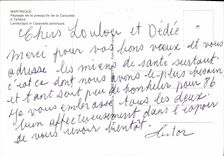 MARTINIQUE
Paysage de la presqu'île de la Caravelle
à Tartane
Landscape in Caravelle peninsula
Chers Loulou et Dédée
Merci pour vos bons vœux et vous
adresse les miens de santé surtout
c'est ce dont nous avons le plus besoin
et tant soit peu de bonheur pour 86
je vous embrasse tous les deux
bien affectueusement dans l'espoir
de vous revoir bientôt.